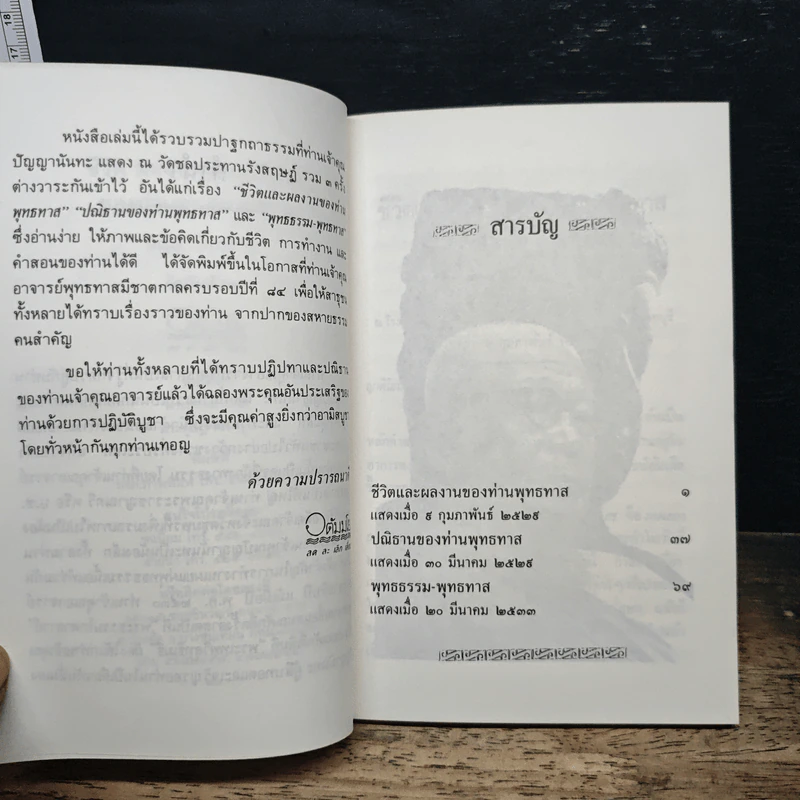 หนังสือเล่มนี้ได้รวบรวมปาฐกถาธรรมที่ท่านเจ้าคุณ
ปัญญานันทะ แสดง ณ วัดชลประทานรังสฤษฎ์ รวม ๓ ครั้ง
ต่างวาระกันเข้าไว้ อันได้แก่เรื่อง “ชีวิตและผลงานของท่าน
พุทธทาส” “ปณิธานของท่านพุทธทาส” และ “พุทธธรรม-พุทธทาส”
ซึ่งอ่านง่าย ให้ภาพและข้อคิดเกี่ยวกับชีวิต การทำงาน และ
คำสอนของท่านได้ดี ได้จัดพิมพ์ขึ้นในโอกาสที่ท่านเจ้าคุณ
อาจารย์พุทธทาสมีชาตกาลครบรอบปีที่ ๘๔ เพื่อให้สาธุชน
ทั้งหลายได้ทราบเรื่องราวของท่าน จากปากของสหายธรรม
คนสำคัญ
ขอให้ท่านทั้งหลายที่ได้ทราบปฏิปทาและปณิธาน
ของท่านเจ้าคุณอาจารย์แล้วได้ฉลองพระคุณอันประเสริฐของ
ท่านด้วยการปฏิบัติบูชา ซึ่งจะมีคุณค่าสูงยิ่งกว่าอามิสบูชา
โดยทั่วหน้ากันทุกท่านเทอญ
ด้วยความปรารถนาดี
ลด ละ เลิก
สารบัญ
ชีวิตและผลงานของท่านพุทธทาส ๑
แสดงเมื่อ ๙ กุมภาพันธ์ ๒๕๒๙
ปณิธานของท่านพุทธทาส ๓๗
แสดงเมื่อ ๓๐ มีนาคม ๒๕๒๙
พุทธธรรม-พุทธทาส ๖๙
แสดงเมื่อ ๒๐ มีนาคม ๒๕๓๓
17
18